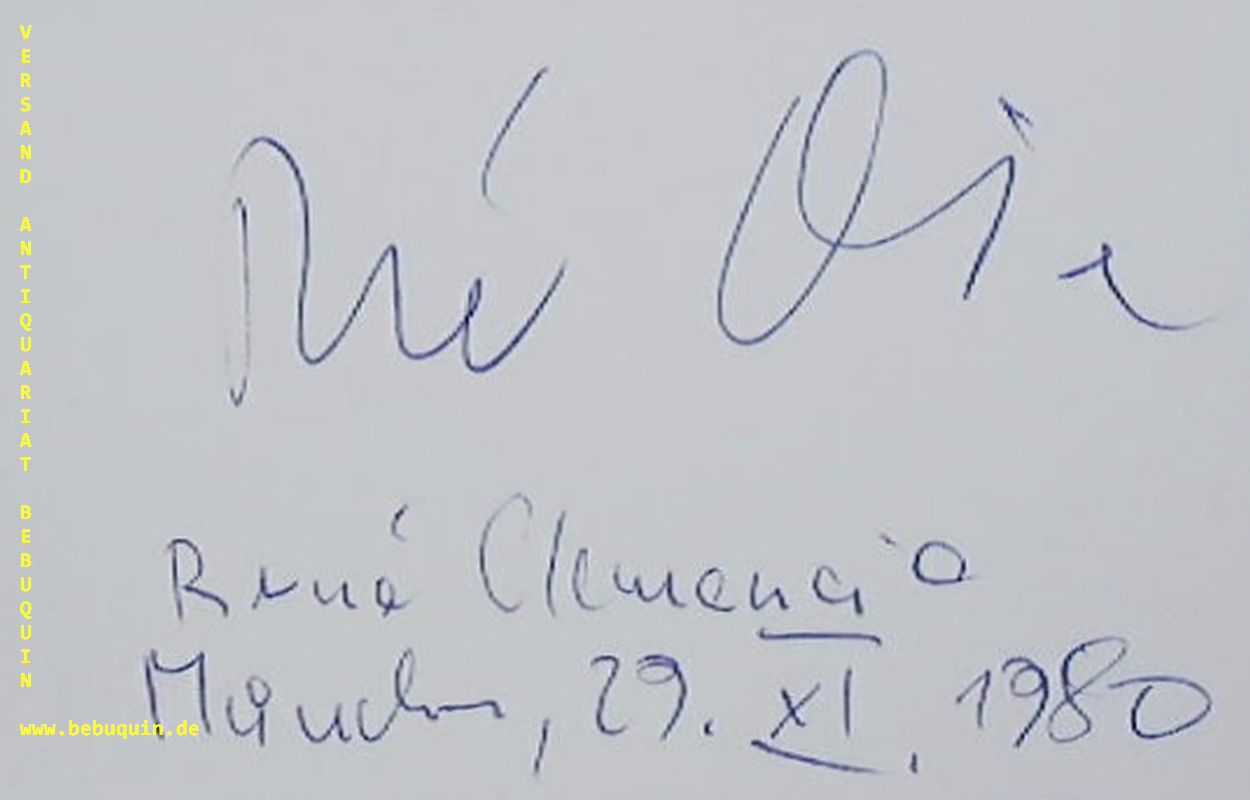 VERSAND ANTIQUARIAT BEBUQUIN
René
René Clemencic
München, 29. XI. 1980
www.bebuquin.de